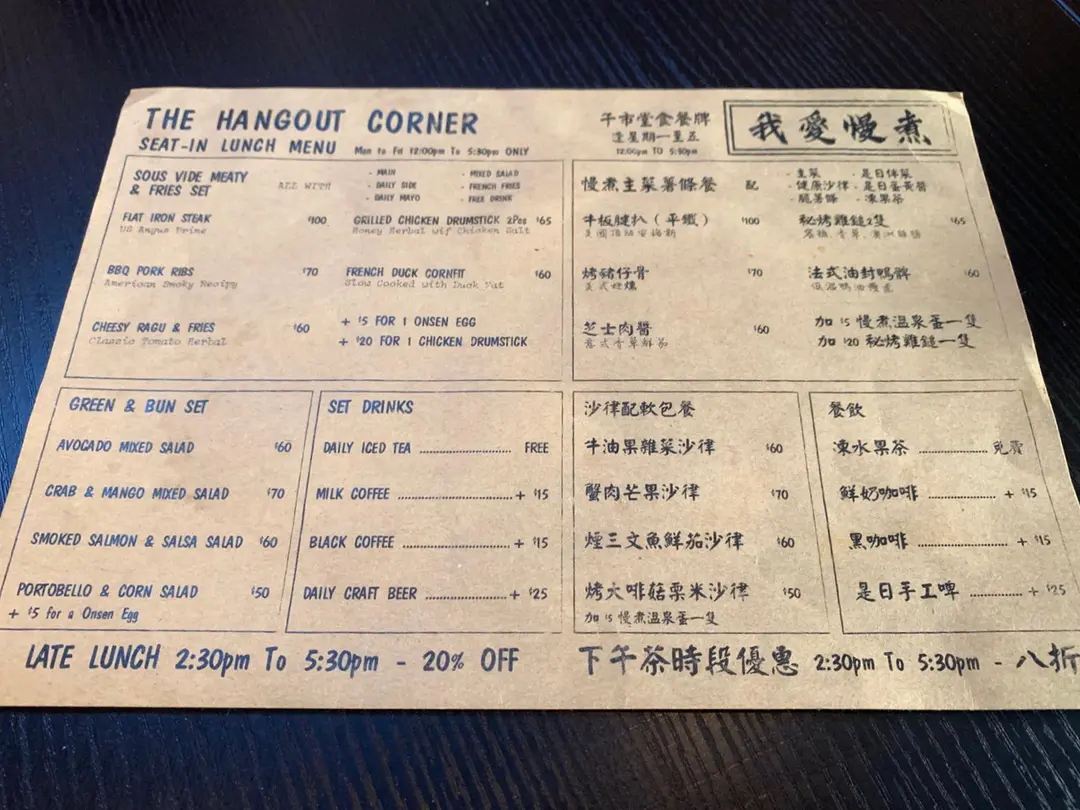 THE HANGOUT CORNER
SEAT-IN LUNCH MENU Mon to Fri 12:00pm To 5:30pm ONLY
SOUS VIDE MEATY & FRIES SET
ALL WITH
- MAIN
- DAILY SIDE
- DAILY MAYO
- MIXED SALAD
- FRENCH FRIES
- FREE DRINK
FLAT IRON STEAK $100
US Angus Prime
GRILLED CHICKEN DRUMSTICK 2Pcs $65
Honey Herbal wif Chicken Salt
BBQ PORK RIBS $70
American Smoky Recipy
FRENCH DUCK CORNFIT $60
Slow Cooked with Duck Fat
CHEESY RAGU & FRIES $60
Classic Tomato Herbal
+ $5 FOR 1 ONSEN EGG
+ $20 FOR 1 CHICKEN DRUMSTICK
GREEN & BUN SET
AVOCADO MIXED SALAD $60
CRAB & MANGO MIXED SALAD $70
SMOKED SALMON & SALSA SALAD $60
PORTOBELLO & CORN SALAD $50
+ $5 for a Onsen Egg
SET DRINKS
DAILY ICED TEA FREE
MILK COFFEE + $15
BLACK COFFEE + $15
DAILY CRAFT BEER + $25
LATE LUNCH 2:30pm To 5:30pm - 20% OFF
午市堂食餐牌
逢星期一至五
12:00pm TO 5:30pm
我愛慢煮
慢煮主菜薯條餐 配
- 主菜
- 健康沙律
- 脆薯條
- 是日伴菜
- 是日蛋黃醬
- 凍果茶
牛板腱扒（平鐵） $100
美國頂級安格斯
秘烤雞鎚2隻 $65
烤豬仔骨 $70
美式煙燻
法式油封鴨髀 $60
低溫鴨油慢煮
芝士肉醬 $60
加 $5 慢煮溫泉蛋一隻
加 $20 秘烤雞鎚一隻
沙律配軟包餐
牛油果雜菜沙律 $60
蟹肉芒果沙律 $70
煙三文魚鮮茄沙律 $60
烤大啡菇粟米沙律 $50
加 $5 慢煮溫泉蛋一隻
餐飲
凍水果茶 免費
鮮奶咖啡 + $15
黑咖啡 + $15
是日手工啤 + $25
下午茶時段優惠 2:30pm To 5:30pm - 八折